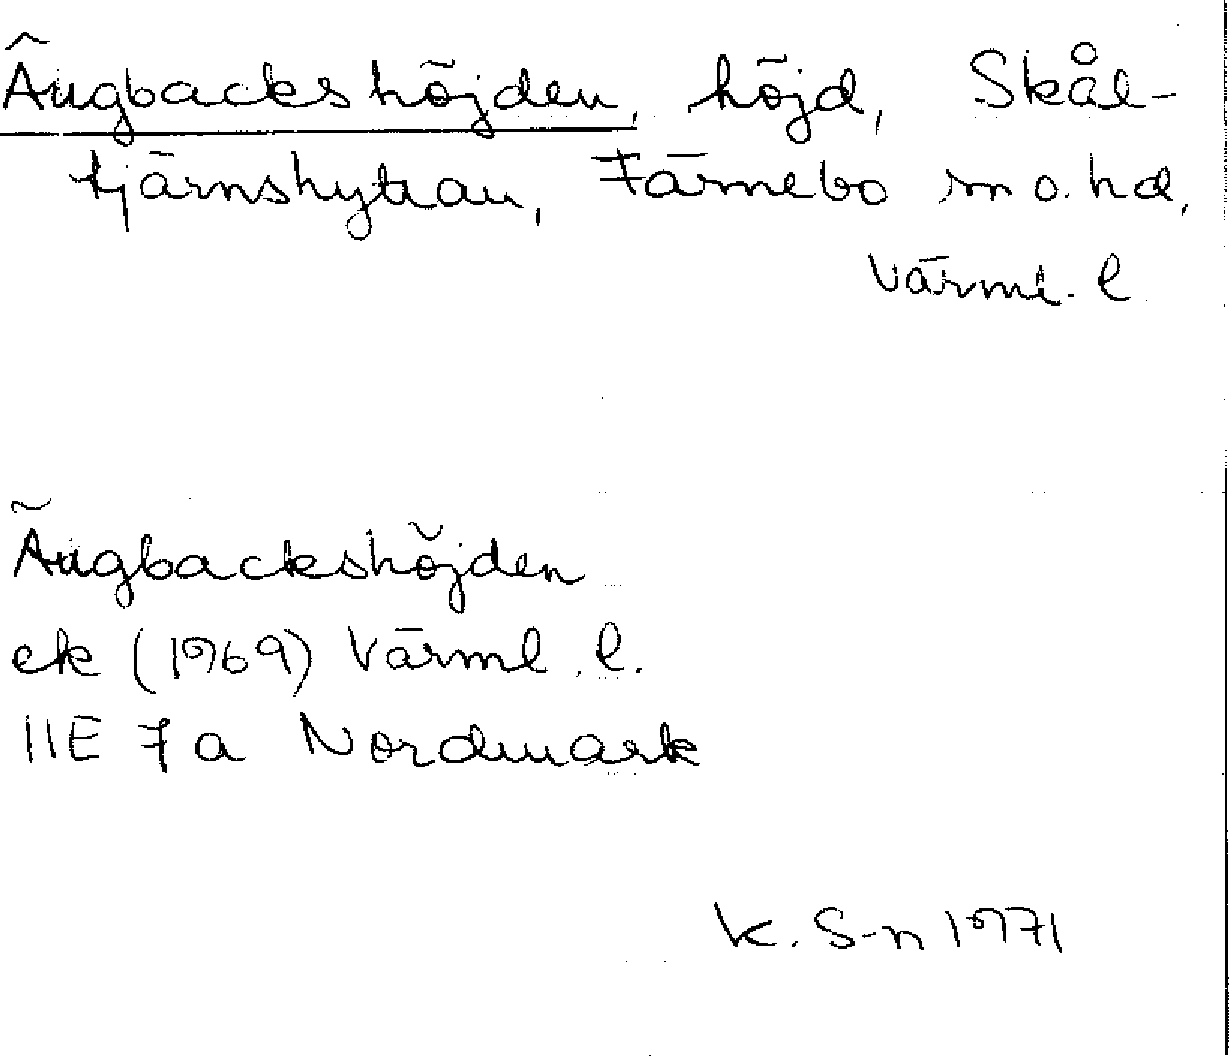 Ängbackshöjden, höjd, Skål-
tjärnshyttan, Färnebo sn o. hd,
Värml. l
Ängbackshöjden
ek (1969) Värml. l.
11E 7a Nordmark
K. S-n 1971